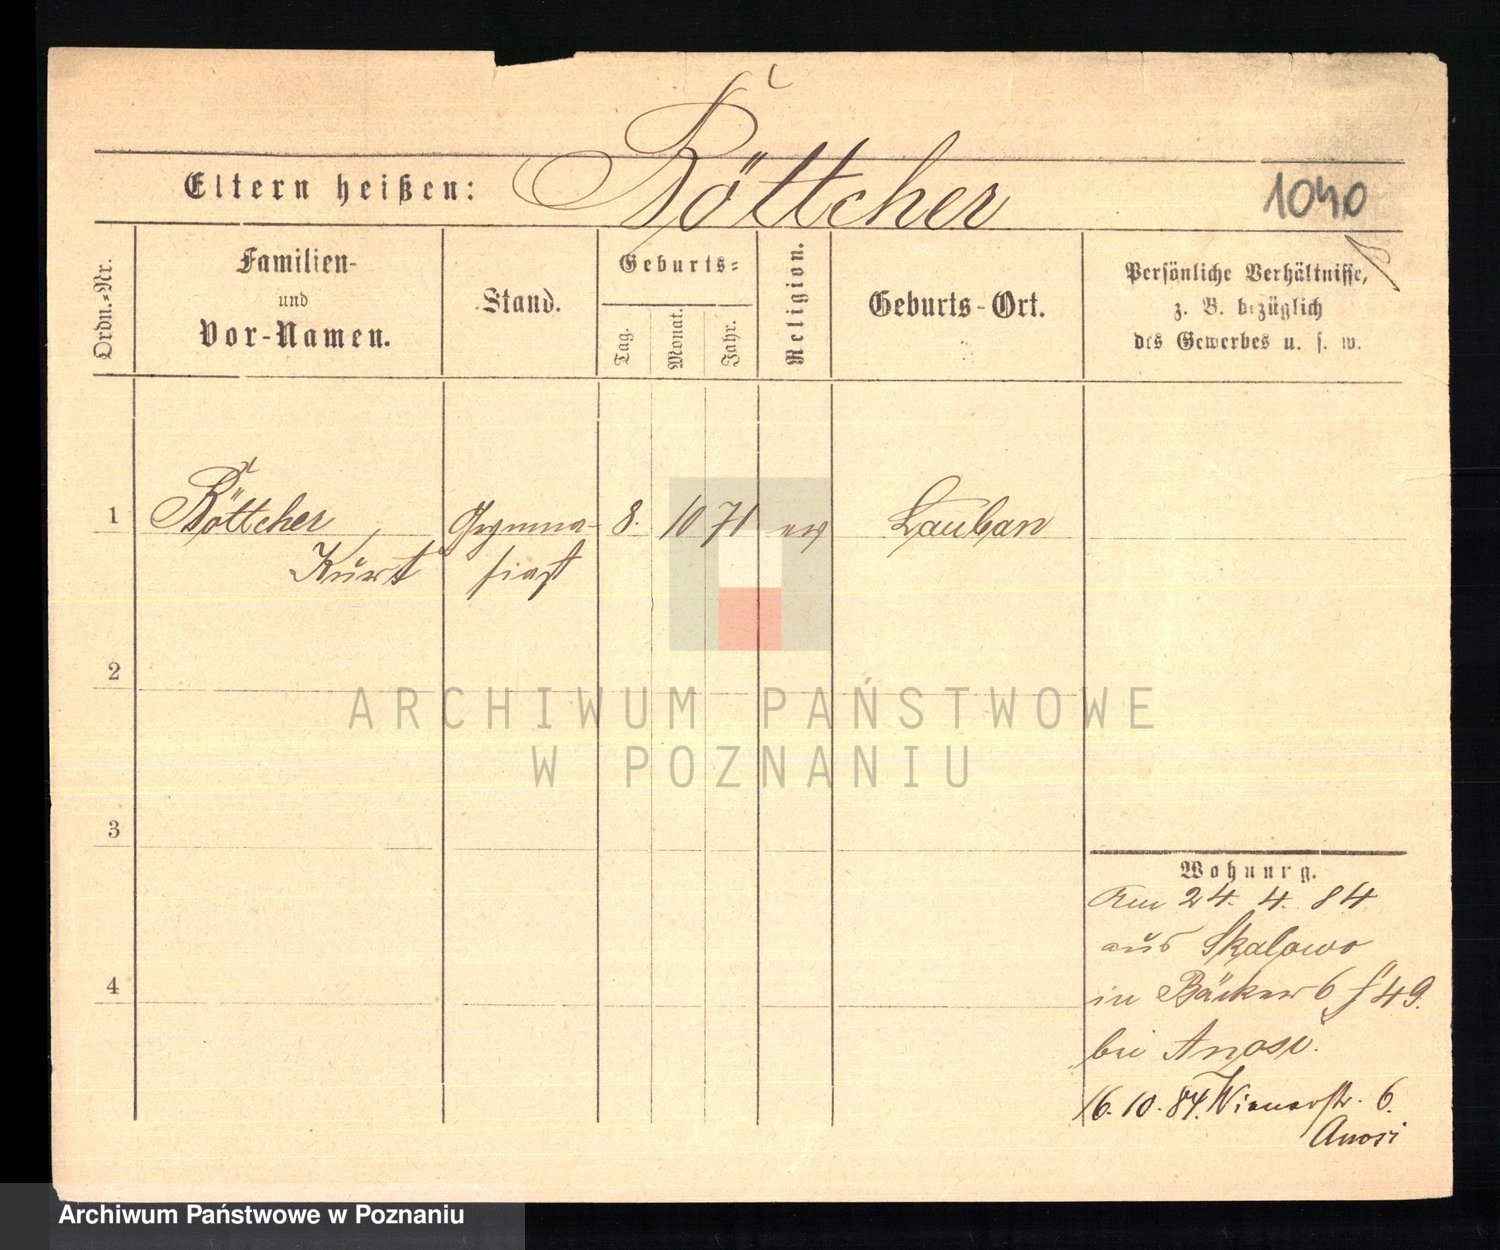 Eltern heißen: Böttcher
1040
Ordn.-Nr.
Familien-
und
Vor-Namen.
Stand.
Geburts-
Tag.
Monat.
Jahr.
Religion.
Geburts-Ort.
Persönliche Verhältnisse,
z. B. bezüglich
des Gewerbes u. s. w.
1 Böttcher, Gymna- 8. 10 71 ev Lauban
Kurt siast
2
3
4
Wohnung.
Am 24. 4. 84
aus Skalowo
in Bäcker 49.
bei Anosi.
16.10.84. Wienerstr. 6.
Anosi
ARCHIWUM PAŃSTWOWE
W POZNANIU
Archiwum Państwowe w Poznaniu